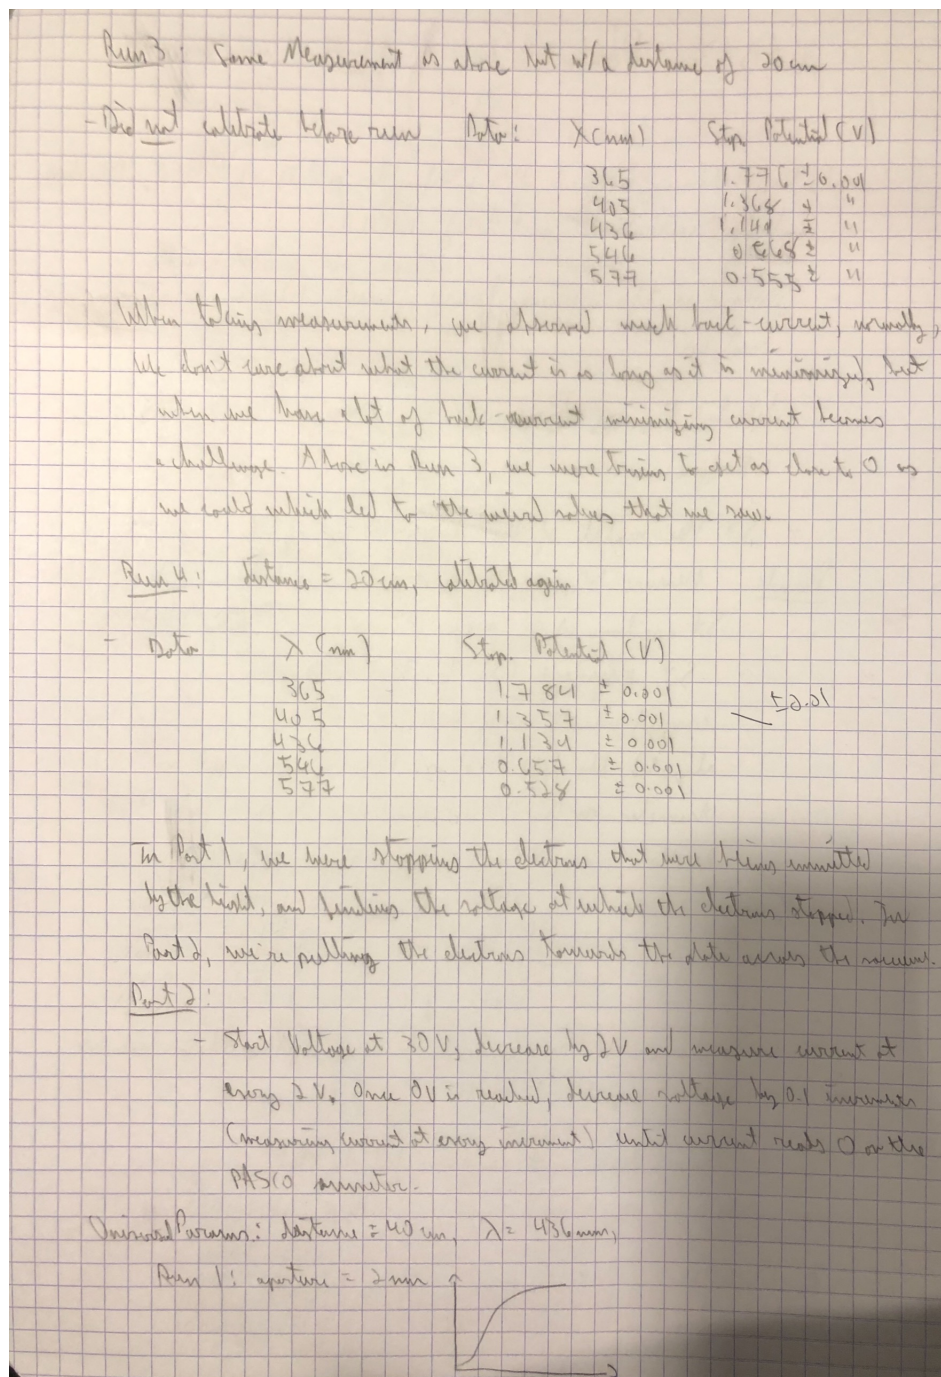 Run 3: Same Measurement as above but w/a distance of 20 cm
- Did not calibrate before run Data: λ(nm) Stop. Potential (V)
365 1.776 ± 0.001
405 1.368 ± "
436 1.149 ± "
546 0.668 ± "
577 0.555 ± "
When taking measurements, we observed much back-current, normally,
We don't care about what the current is as long as it is minimized, but
when we have a lot of back-current minimizing current becomes
a challenge. Above in Run 3, we were trying to get as close to 0 as
we could which led to the weird values that we saw.
Run 4: distance = 20 cm, calibrated again
- Data λ (nm) Stop. Potential (V)
365 1.784 ± 0.001
405 1.357 ± 0.001 ±0.01
436 1.134 ± 0.001
546 0.657 ± 0.001
577 0.528 ± 0.001
In Part 1, we were stopping the electrons that were being emmitted
by the light, and finding the voltage at which the electrons stopped. In
Part 2, we're pulling the electrons towards the plate across the vacuum.
Part 2:
- Start Voltage at 30V, decrease by 2V and measure current at
every 2V. Once 0V is reached, decrease voltage by 0.1 increments
(measuring current at every increment) until current reads 0 on the
PASCO ammeter.
Universal Params: distance = 40 cm, λ = 436nm,
Run 1: aperture = 2mm